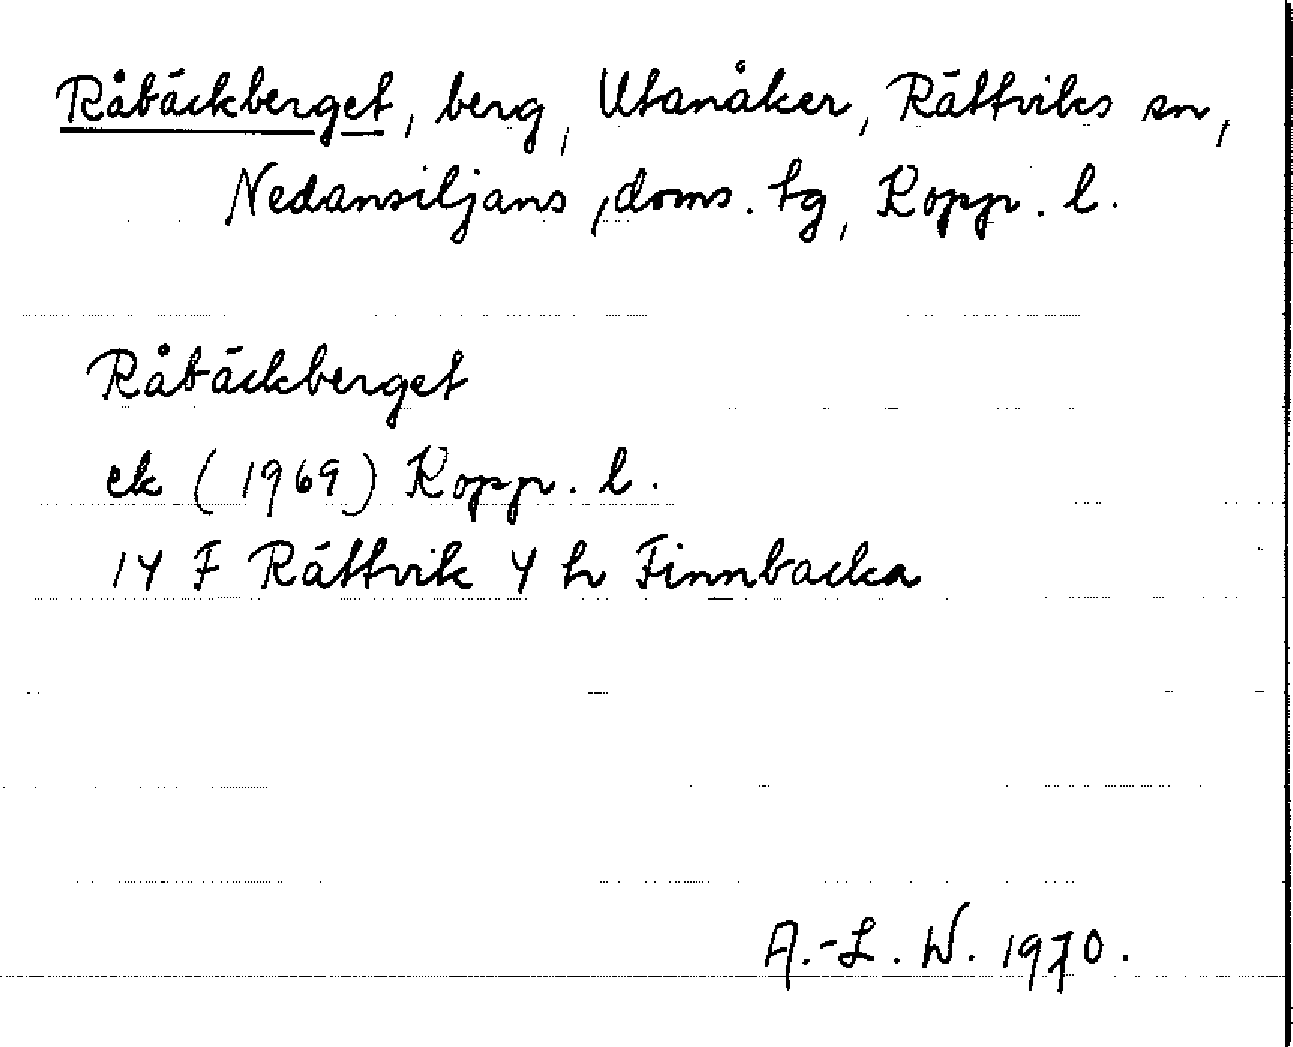 Råbäckberget, berg, Utanåker, Rättviks sn,
Nedansiljans, doms. tg, Kopp. l.
Råbäckberget
ek (1969) Kopp. l.
14 F Rättvik 4 h Finnbacka
A.-L. W. 1970.